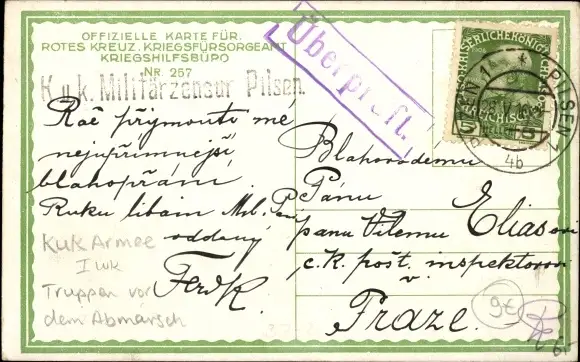 OFFIZIELLE KARTE FÜR
ROTES KREUZ, KRIEGSFÜRSORGEAMT
KRIEGSHILFSBÜRO
NR. 257
K.u.k. Militärzensur Pilsen.
Überprüft.
PILSEN 1
4b
5
Rač přijmouti mé
nejupřímnější
blahopřání.
Ruku líbám Mil. Paní
oddaný
FerdK.
Blahorodému
Pánu
panu Vilému Eliasovi
c. k. post. inspektorovi
v
Praze.
KuK Armee
I wk
Truppen vor
dem Abmarsch
9€